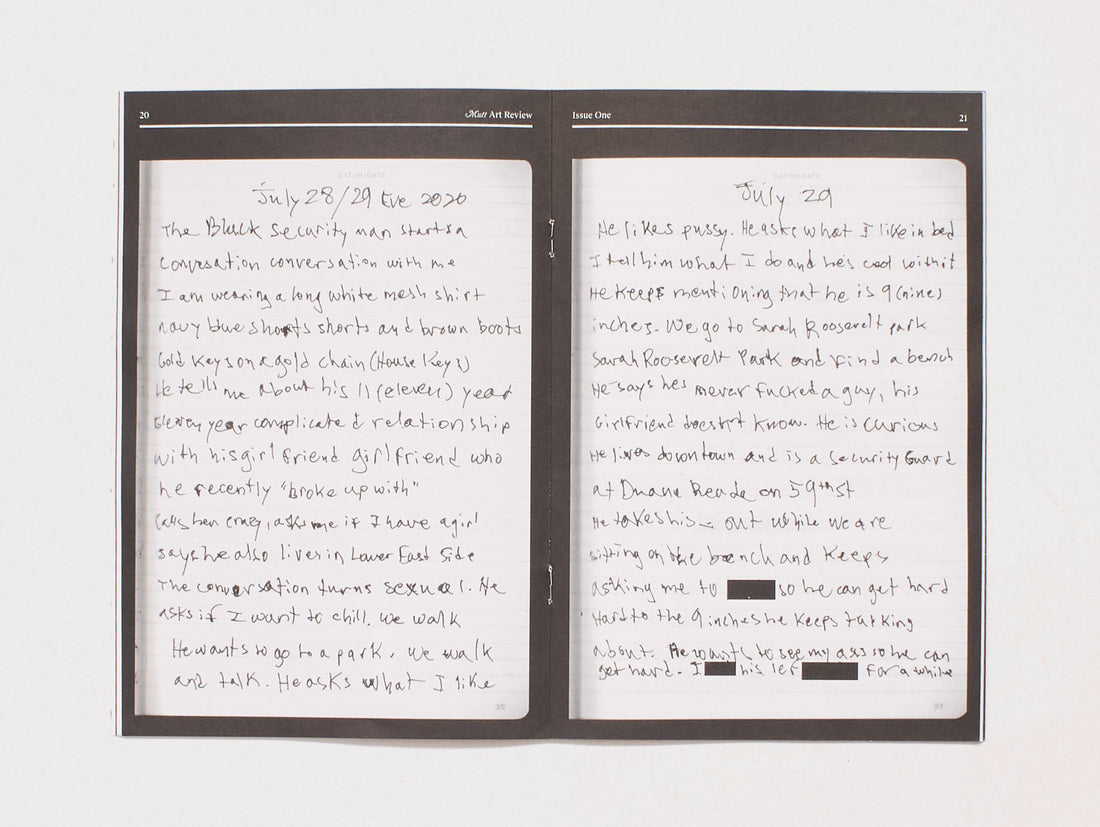 20
Mutt Art Review
DATUM/DATE
July 28/29 Eve 2020
The Black security man starts a
convesation conversation with me
I am wearing a long white mesh shirt
navy blue shorts shorts and brown boots
Gold Keys on a gold chain (House Keys)
He tells me about his 11 (eleven) year
Eleven year complicated relationship
with his girl friend girlfriend who
he recently "broke up with"
Calls her crazy, asks me if I have a girl
says he also lives in Lower East Side
The conversation turns sexual. He
asks if I want to chill. We walk
He wants to go to a park. We walk
and talk. He asks what I like
35
Issue One
21
DATUM/DATE
July 29
He likes pussy. He asks what I like in bed
I tell him what I do and he's cool with it
He keeps mentioning that he is 9 (nine)
inches. We go to Sarah Roosevelt park
Sarah Roosevelt Park and find a bench
He says hes never fucked a guy, his
Girlfriend doesn't know. He is curious
He lives downtown and is a Security Guard
at Duane Reade on 59th st
He takes his out while we are
sitting on the bench and keeps
asking me to so he can get hard
Hard to the 9 inches he keeps talking
about. He wants to see my ass so he can
get hard. I his for a while
37